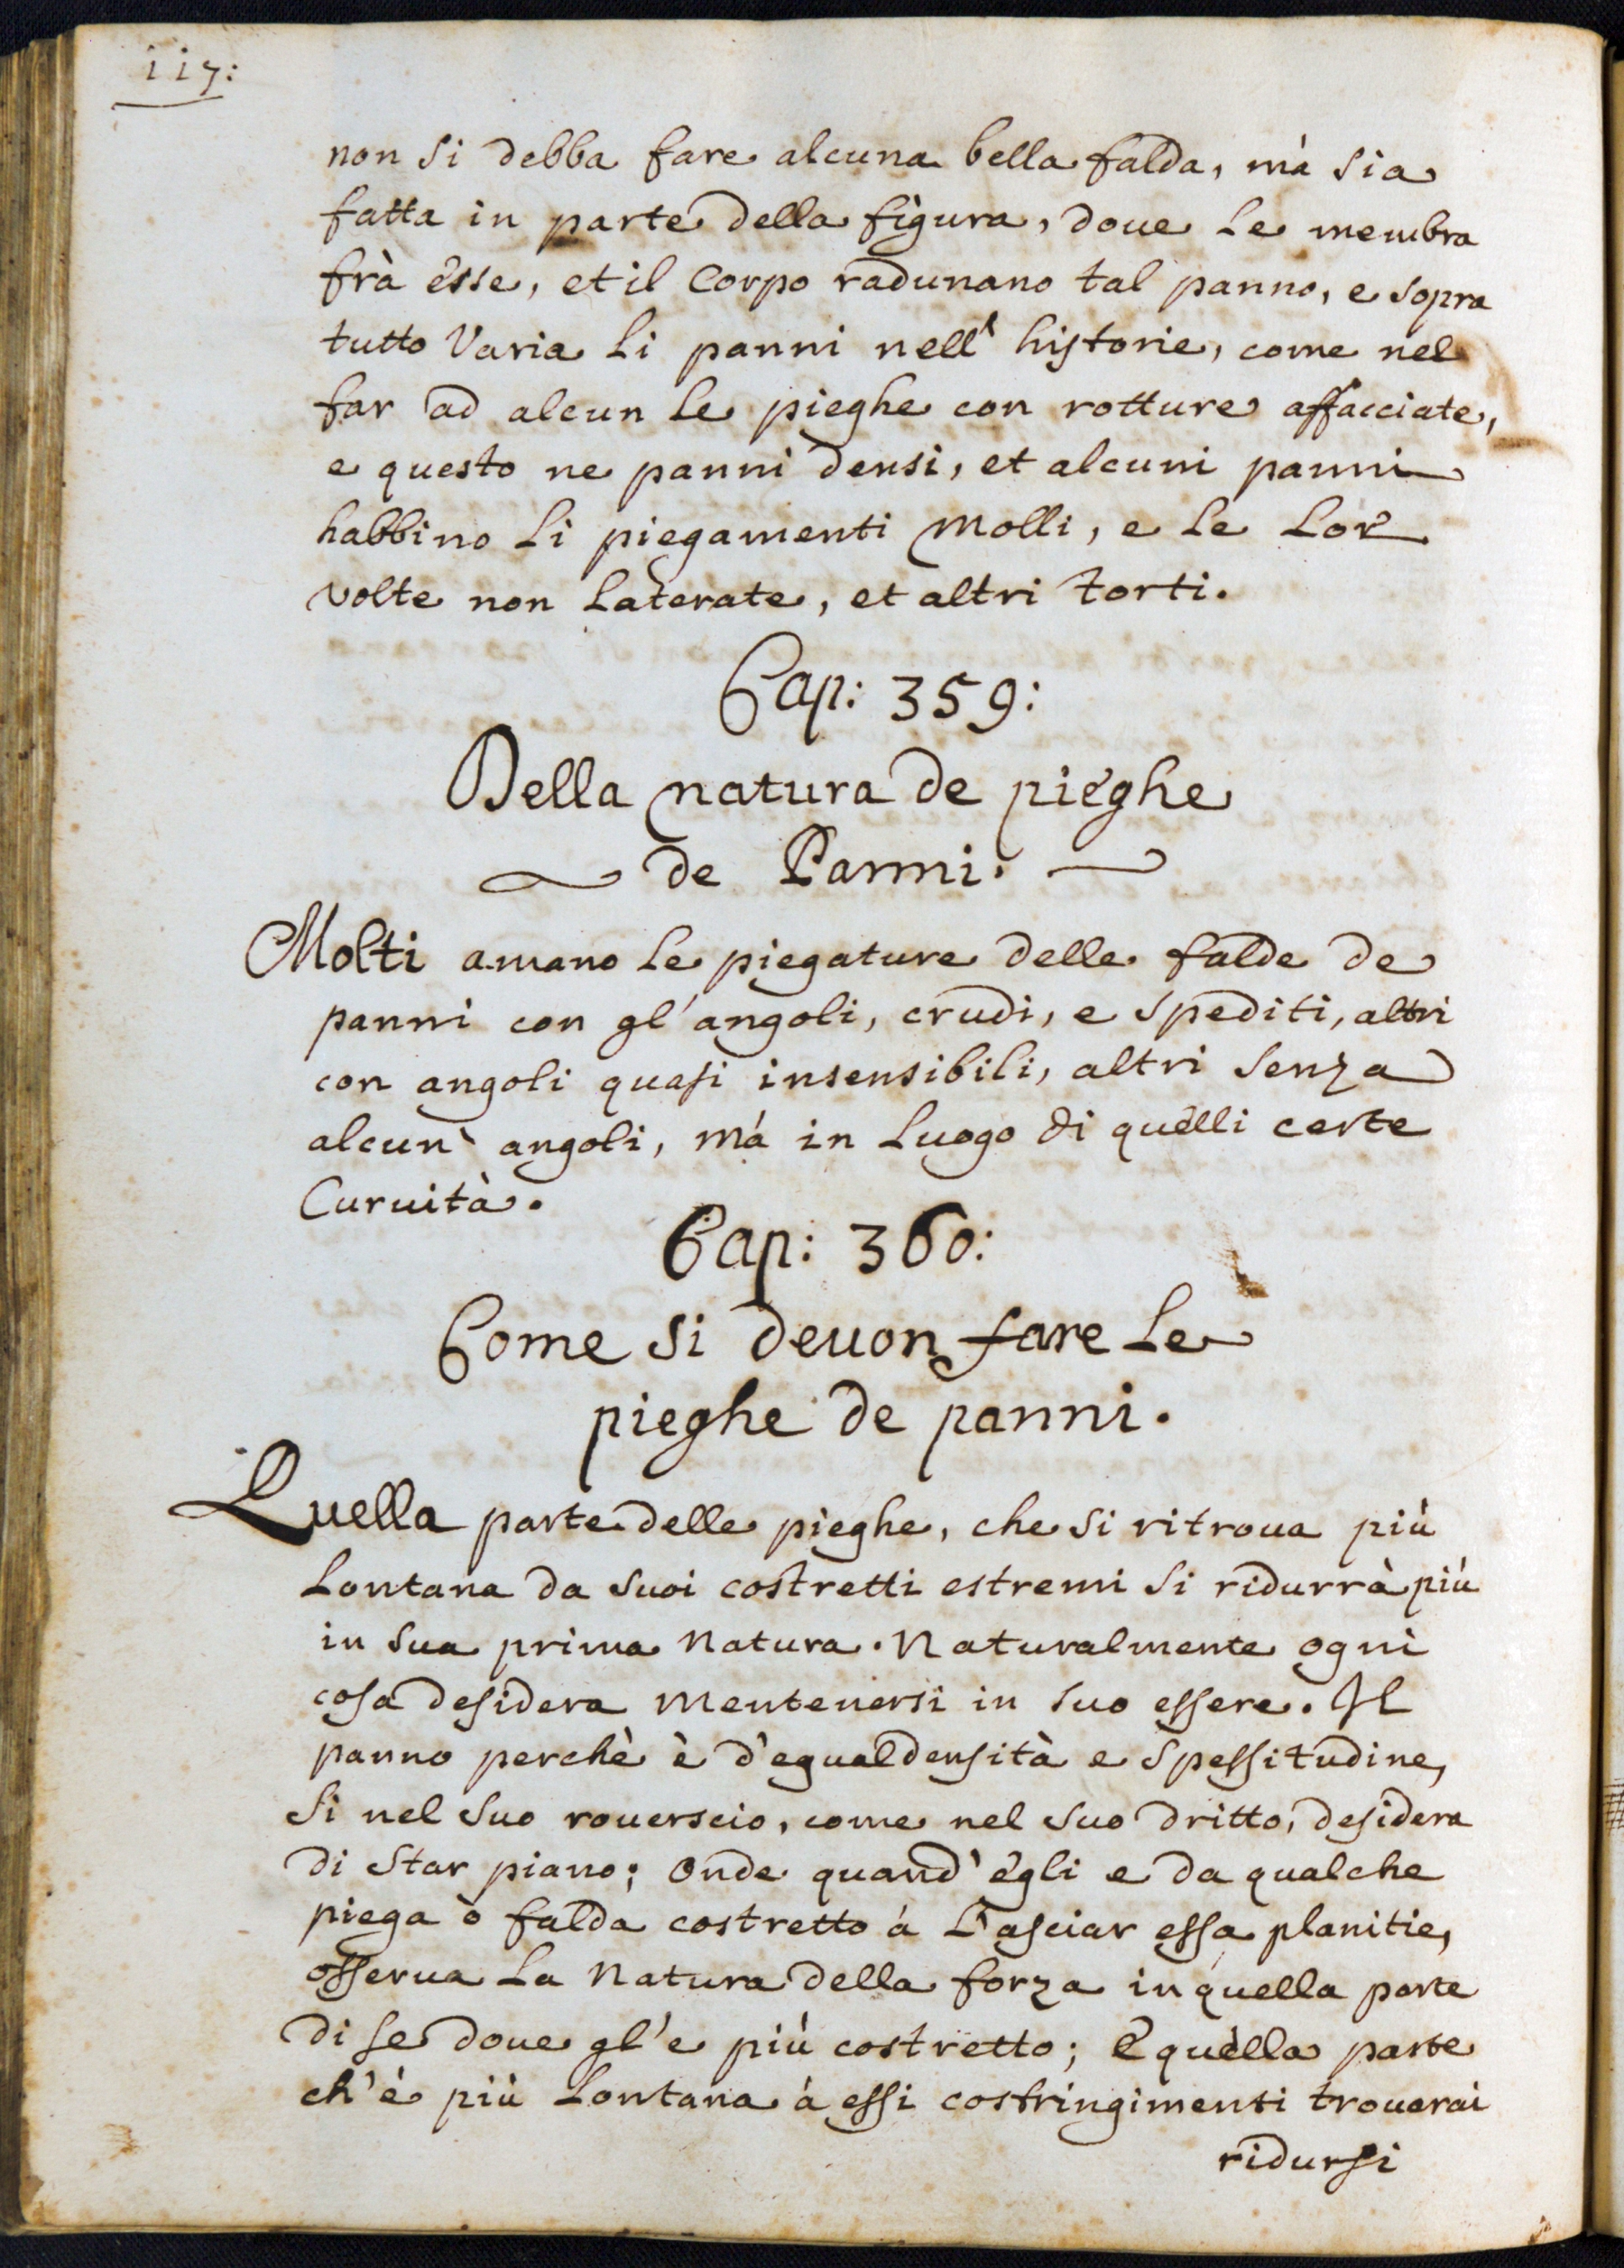 117:
non si debba fare alcuna bella falda, mà sia
fatta in parte della figura, doue le membra
frà esse, et il Corpo radunano tal panno, e sopra
tutto Varia li panni nell' historie, come nel
far ad alcun le pieghe con rotture affacciate,
e questo ne panni densi, et alcuni panni
habbino li piegamenti Molli, e le lor
volte non laterate, et altri torti.
Cap: 359:
Della natura de pieghe
de Panni.
Molti amano le piegature delle falde de
panni con gl'angoli, crudi, e spediti, altri
con angoli quasi insensibili, altri senza
alcun' angoli, mà in luogo di quelli certe
Curuità.
Cap: 360:
Come si deuon fare le
pieghe de panni.
Quella parte delle pieghe, che si ritroua più
lontana da suoi costretti estremi si ridurrà più
in sua prima Natura. Naturalmente ogni
cosa desidera Mentenersi in suo essere. Il
panno perchè è d'egual densità e spessitudine,
si nel suo rouerscio, come nel suo dritto, desidera
di star piano; Onde quand' egli e da qualche
piega ò falda costretto à l'asciar essa planitie,
osserua la Natura della forza in quella parte
di se doue gl'e più costretto; E quella parte
ch'è più lontana à essi costringimenti trouerai
ridursi